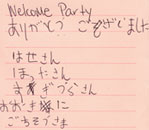 Welcome Party
ありがとう ございました
はせさん
ほったさん
すぎうらさん
おおきに
ごちそうさま